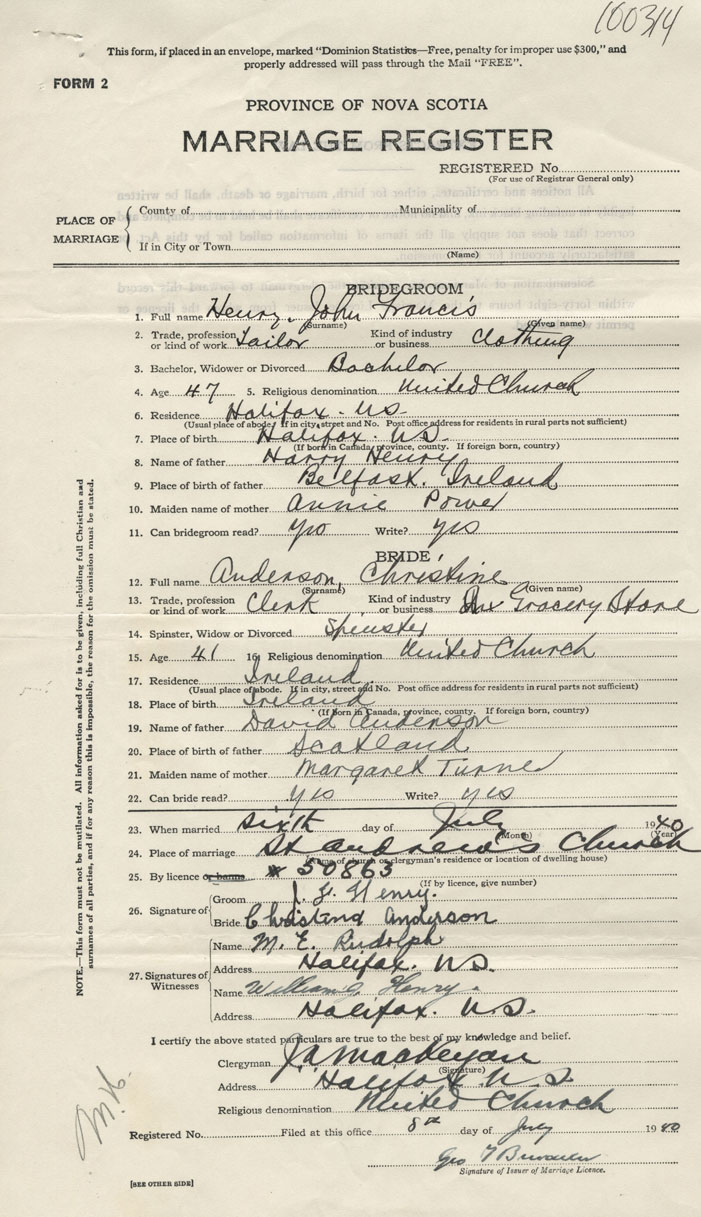 100314
This form, if placed in an envelope, marked "Dominion Statistics—Free, penalty for improper use $300," and
properly addressed will pass through the Mail "FREE".
FORM 2
PROVINCE OF NOVA SCOTIA
MARRIAGE REGISTER
REGISTERED No.
(For use of Registrar General only)
PLACE OF MARRIAGE
County of Municipality of
If in City or Town
(Name)
BRIDEGROOM
1. Full name Henry, John Francis
(Surname) (Given name)
2. Trade, profession or kind of work Tailor Kind of industry or business clothing
3. Bachelor, Widower or Divorced Bachelor
4. Age 47 5. Religious denomination United Church
6. Residence Halifax. N.S.
(Usual place of abode. If in city, street and No. Post office address for residents in rural parts not sufficient)
7. Place of birth Halifax. N.S.
(If born in Canada, province, county. If foreign born, country)
8. Name of father Harry Henry
9. Place of birth of father Belfast. Ireland
10. Maiden name of mother Annie Power
11. Can bridegroom read? yes Write? yes
BRIDE
12. Full name Anderson, Christine
(Surname) (Given name)
13. Trade, profession or kind of work Clerk Kind of industry or business Grocery Store
14. Spinster, Widow or Divorced Spinster
15. Age 41 16. Religious denomination United Church
17. Residence Ireland
(Usual place of abode. If in city, street and No. Post office address for residents in rural parts not sufficient)
18. Place of birth Ireland
(If born in Canada, province, county. If foreign born, country)
19. Name of father David Anderson
20. Place of birth of father Scotland
21. Maiden name of mother Margaret Turner
22. Can bride read? yes Write? yes
23. When married sixth day of July 1940
(Month) (Year)
24. Place of marriage St Andrew's Church
(Name of church or clergyman's residence or location of dwelling house)
25. By licence or banns # 50863
(If by licence, give number)
26. Signature of Groom J. F. Henry.
Bride Christina Anderson
27. Signatures of Witnesses
Name M. E. Rudolph
Address Halifax. N.S.
Name William G. Henry.
Address Halifax. N.S.
I certify the above stated particulars are true to the best of my knowledge and belief.
Clergyman
(Signature)
Address Halifax. N.S.
Religious denomination United Church
Registered No. Filed at this office 8th day of July 1940
Geo
Signature of Issuer of Marriage Licence.
[SEE OTHER SIDE]
NOTE.—This form must not be mutilated. All information asked for is to be given, including full Christian and
surnames of all parties, and if for any reason this is impossible, the reason for the omission must be stated.